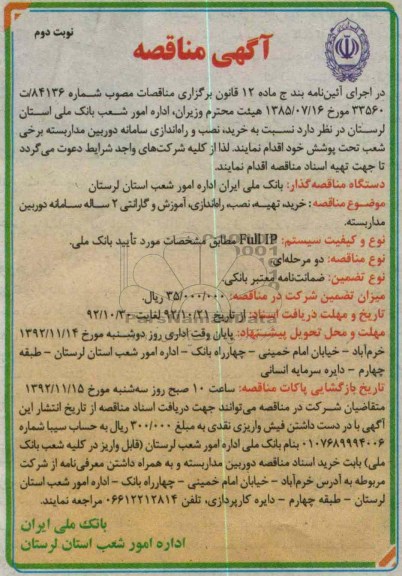 نوبت دوم
آگهی مناقصه
در اجرای آئین‌نامه بند ج ماده ۱۲ قانون برگزاری مناقصات مصوب شماره ۸۴۱۳۶/ت
۳۳۵۶۰ مورخ ۱۳۸۵/۰۷/۱۶ هیئت محترم وزیران، اداره امور شعب بانک ملی استان
لرستان در نظر دارد نسبت به خرید، نصب و راه‌اندازی سامانه دوربین مداربسته برخی
شعب تحت پوشش خود اقدام نمایند. لذا از کلیه شرکت‌های واجد شرایط دعوت می‌گردد
تا جهت تهیه اسناد مناقصه اقدام نمایند.
دستگاه مناقصه‌گذار: بانک ملی ایران اداره امور شعب استان لرستان
موضوع مناقصه: خرید، تهیه، نصب، راه‌اندازی، آموزش و گارانتی ۲ ساله سامانه دوربین
مداربسته.
نوع و کیفیت سیستم: Full IP مطابق مشخصات مورد تأیید بانک ملی.
نوع مناقصه: دو مرحله‌ای.
نوع تضمین: ضمانت‌نامه معتبر بانکی.
میزان تضمین شرکت در مناقصه: ۳۵/۰۰۰/۰۰۰ ریال.
تاریخ و مهلت دریافت اسناد: از تاریخ ۹۲/۱۰/۲۱ لغایت ۹۲/۱۰/۳۰
مهلت و محل تحویل پیشنهاد: پایان وقت اداری روز دوشنبه مورخ ۱۳۹۲/۱۱/۱۴
خرم‌آباد - خیابان امام خمینی - چهارراه بانک - اداره امور شعب استان لرستان - طبقه
چهارم - دایره سرمایه انسانی
تاریخ بازگشایی پاکات مناقصه: ساعت ۱۰ صبح روز سه‌شنبه مورخ ۱۳۹۲/۱۱/۱۵
متقاضیان شرکت در مناقصه می‌توانند جهت دریافت اسناد مناقصه از تاریخ انتشار این
آگهی با در دست داشتن فیش واریزی نقدی به مبلغ ۳۰۰/۰۰۰ ریال به حساب سیبا شماره
۰۱۰۷۶۸۹۹۹۴۰۰۶ بنام بانک ملی اداره امور شعب لرستان (قابل واریز در کلیه شعب بانک
ملی) بابت خرید اسناد مناقصه دوربین مداربسته و به همراه داشتن معرفی‌نامه از شرکت
مربوطه به آدرس خرم‌آباد - خیابان امام خمینی - چهارراه بانک - اداره امور شعب استان
لرستان - طبقه چهارم - دایره کارپردازی، تلفن ۰۶۶۱۲۲۱۲۸۱۴ مراجعه نمایند.
بانک ملی ایران
اداره امور شعب استان لرستان